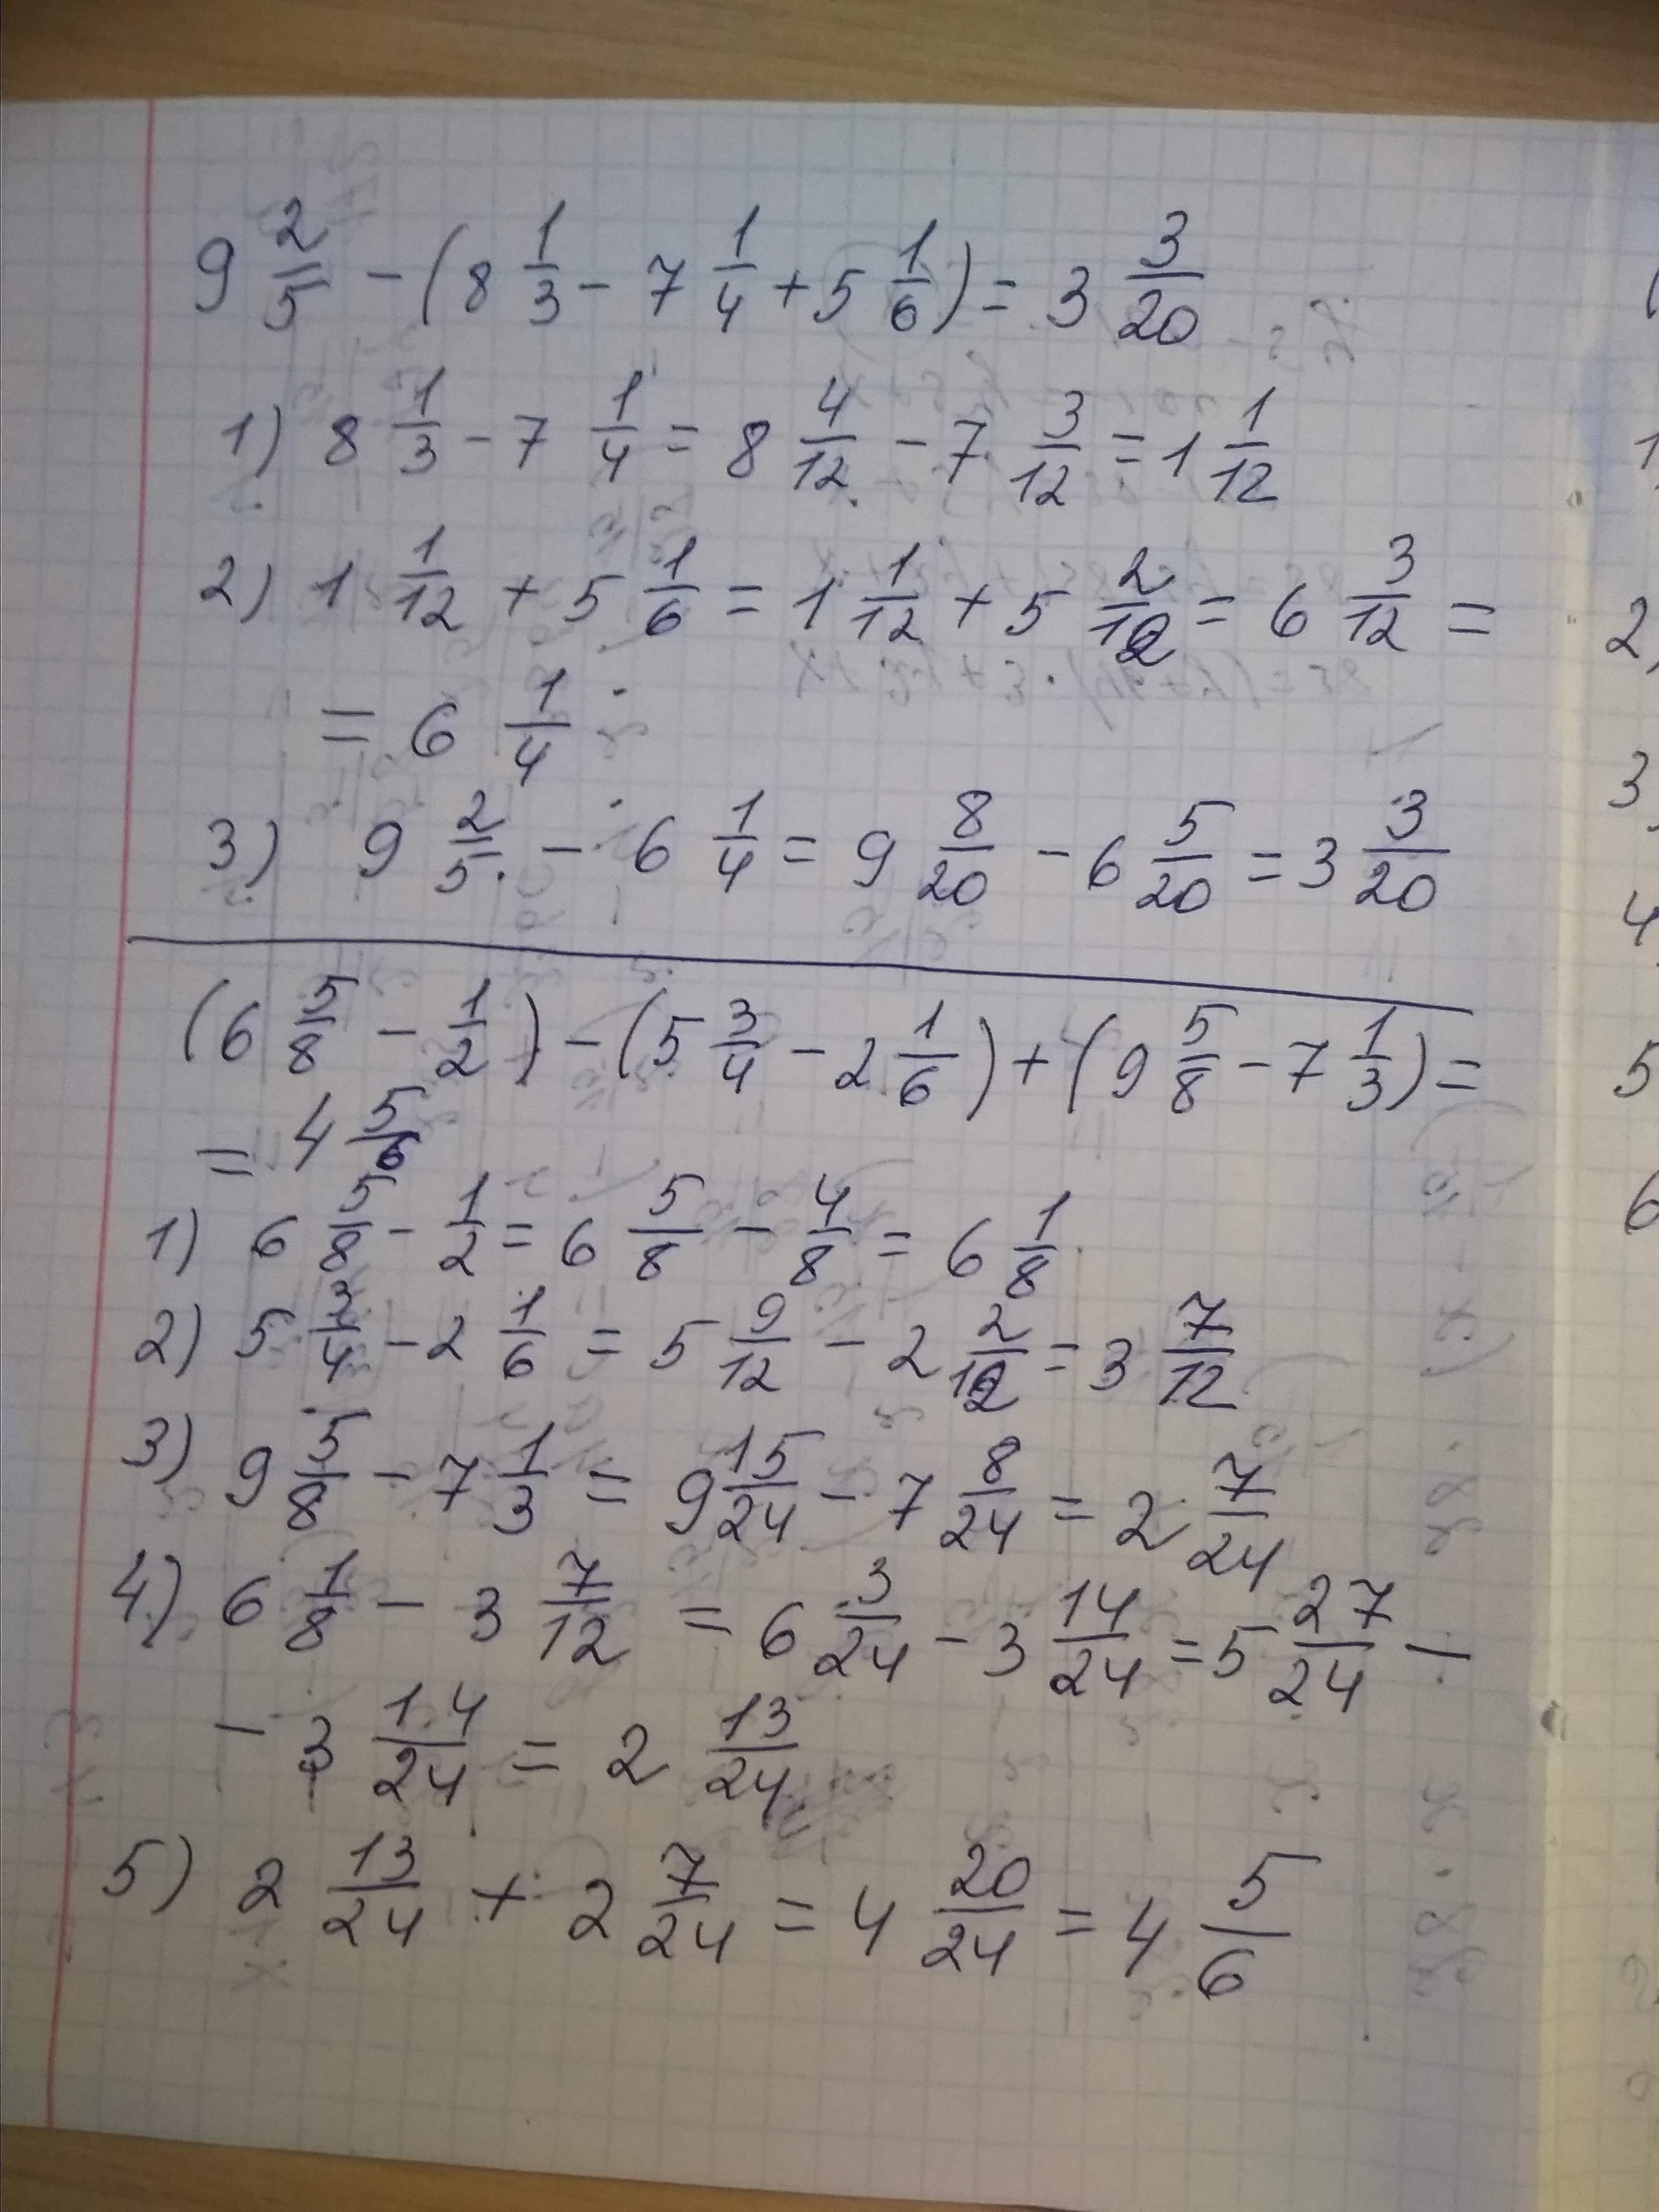 9 2/5 - (8 1/3 - 7 1/4 + 5 1/6) = 3 3/20
1) 8 1/3 - 7 1/4 = 8 4/12 - 7 3/12 = 1 1/12
2) 1 1/12 + 5 1/6 = 1 1/12 + 5 2/12 = 6 3/12 =
= 6 1/4
3) 9 2/5 - 6 1/4 = 9 8/20 - 6 5/20 = 3 3/20
(6 5/8 - 1/2) - (5 3/4 - 2 1/6) + (9 5/8 - 7 1/3) =
= 4 5/6
1) 6 5/8 - 1/2 = 6 5/8 - 4/8 = 6 1/8
2) 5 3/4 - 2 1/6 = 5 9/12 - 2 2/12 = 3 7/12
3) 9 5/8 - 7 1/3 = 9 15/24 - 7 8/24 = 2 7/24
4) 6 1/8 - 3 7/12 = 6 3/24 - 3 14/24 = 5 27/24 -
- 3 14/24 = 2 13/24
5) 2 13/24 + 2 7/24 = 4 20/24 = 4 5/6
(
1
2)
3
4
5
6